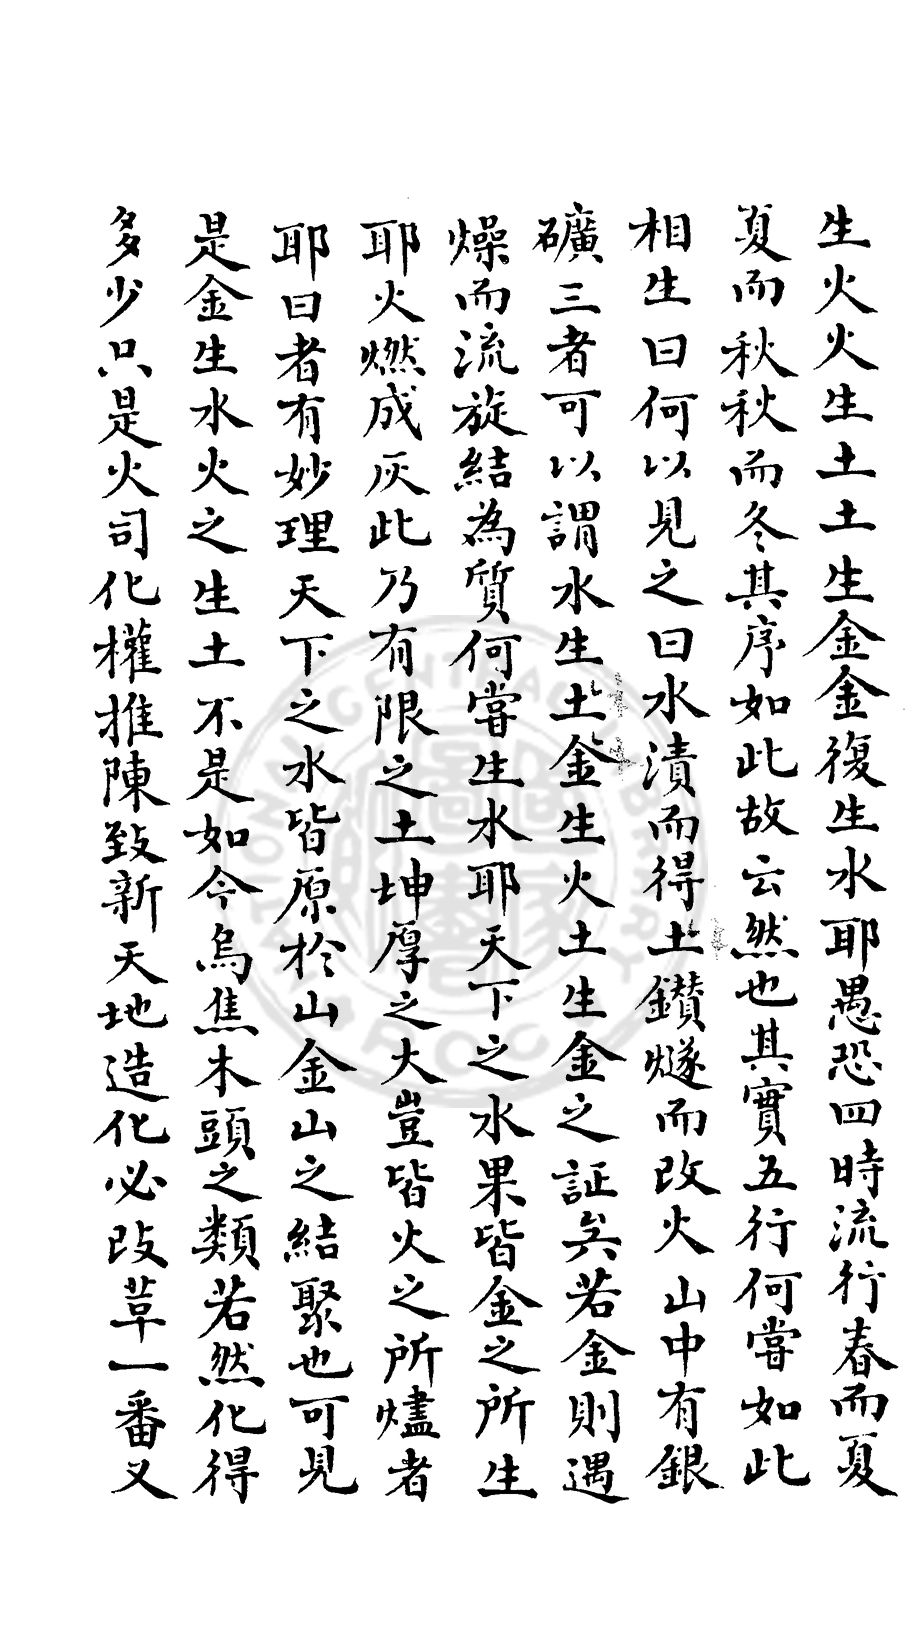 生火火生土土生金金復生水耶愚恐四時流行春而夏
夏而秋秋而冬其序如此故云然也其實五行何嘗如此
相生曰何以見之曰水漬而得土鑽燧而改火山中有銀
礦三者可以謂水生土金生火土生金之証矣若金則遇
燥而流旋結為質何嘗生水耶天下之水果皆金之所生
耶火燃成灰此乃有限之土坤厚之大豈皆火之所燼者
耶曰者有妙理天下之水皆原於山金山之結聚也可見
是金生水火之生土不是如今烏焦木頭之類若然化得
多少只是火司化權推陳致新天地造化必改草一番又
NATIONAL CENTRAL LIBRARY R.O.C.
國家圖書館